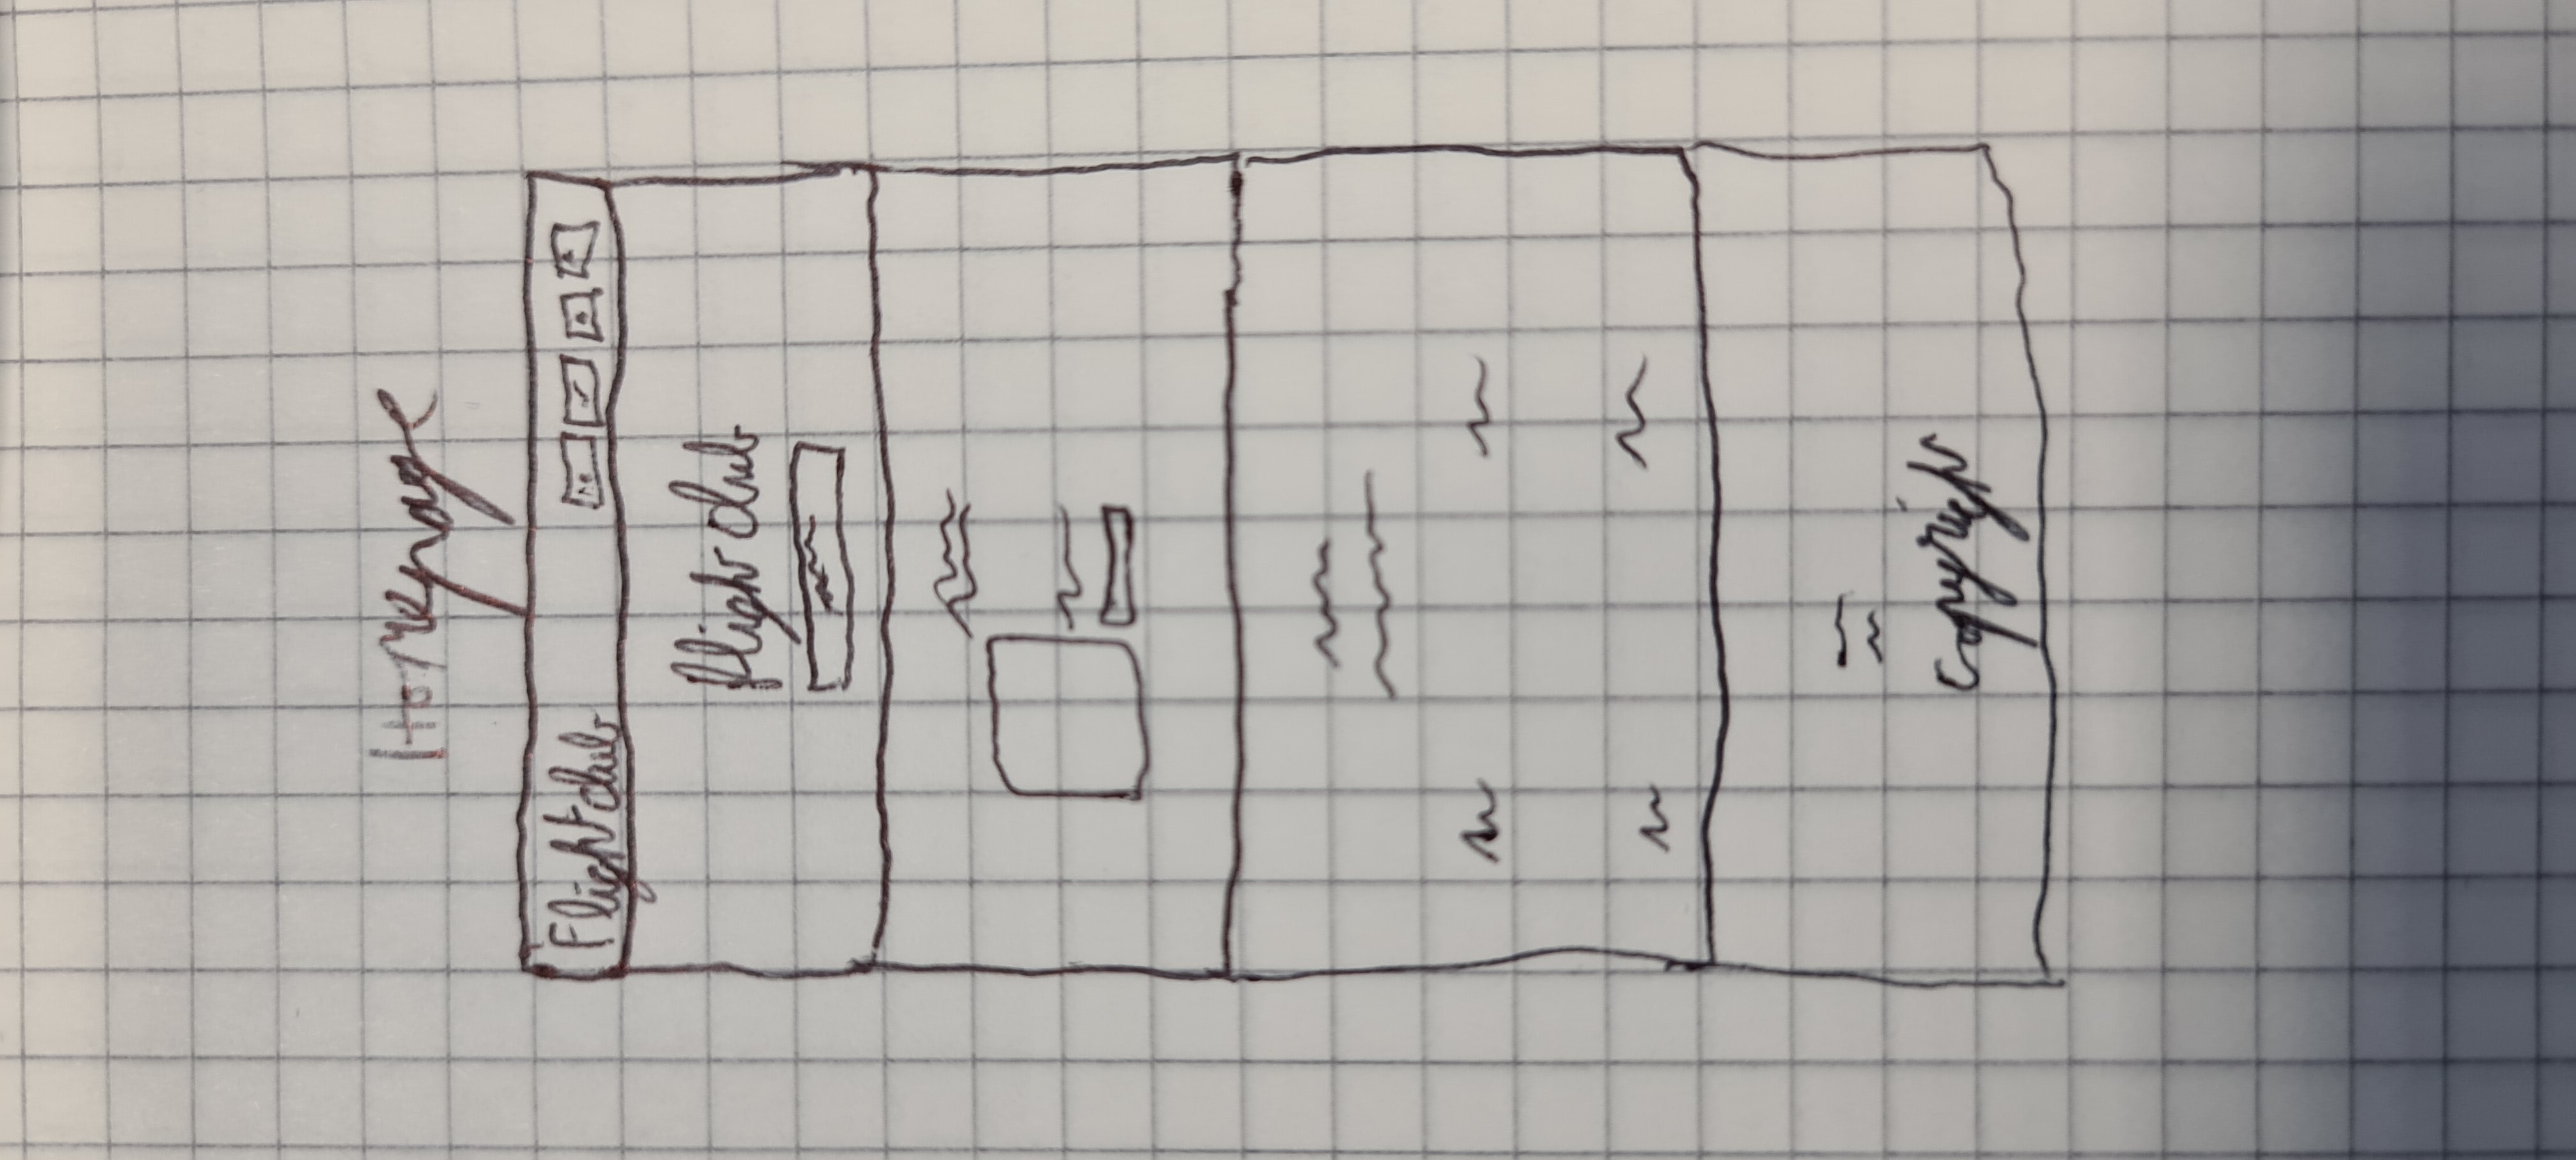 Homepage
Flight club
flight club
copyright